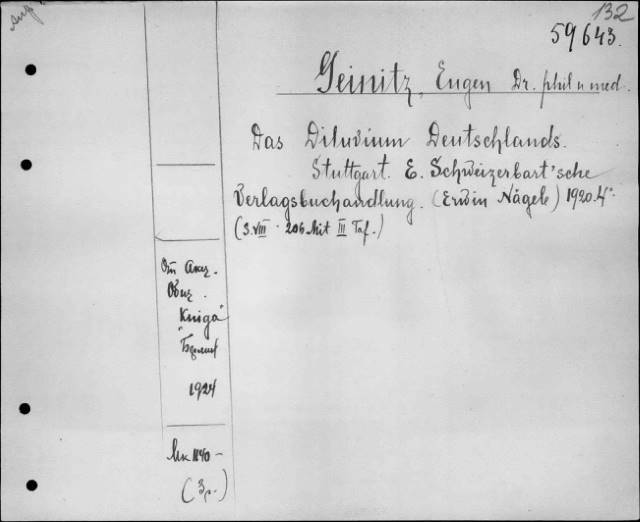 132
59643.
Geinitz, Eugen Dr. phil u med.
Das Diluvium Deutschlands.
Stuttgart. E. Schweizerbart'sche
Verlagsbuchandlung. (Erwin Nägele) 1920. 4°.
(S. VIII · 206 Mit III Taf.)
От Акц.
Общ.
"Kniga"
1924
Mk 1140 –
(3р.)